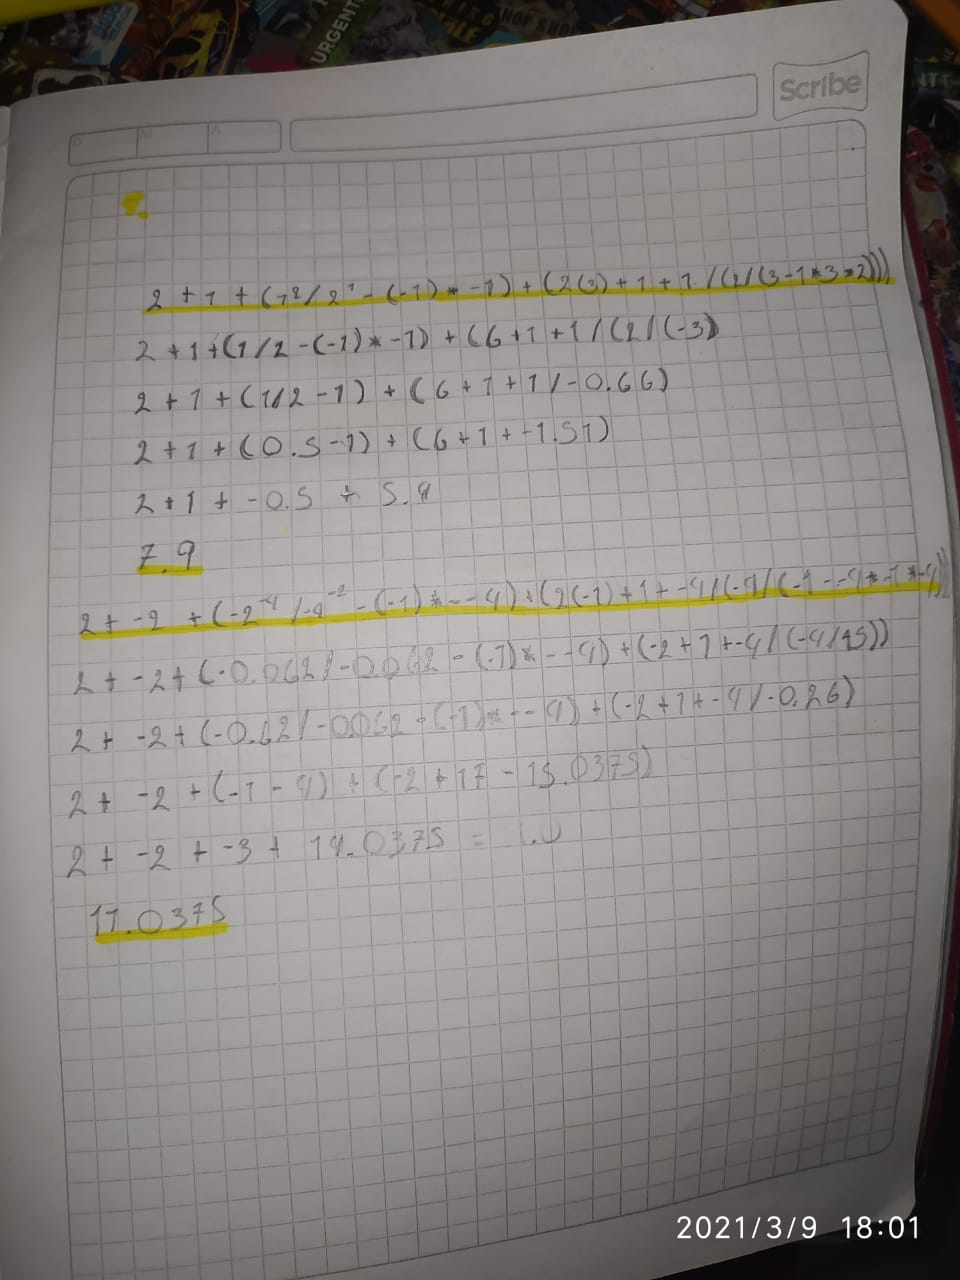 URGENT
NOP SHOP
Scribe
D M A
2 + 1 + (1²/2¹ - (-1) * -1) + (2(3) + 1 + 1 / (2/(3-1*3*2)))
2 + 1 + (1/2 - (-1) * -1) + (6 + 1 + 1 / (2 / (-3)
2 + 1 + (1/2 - 1) + (6 + 1 + 1 / -0.66)
2 + 1 + (0.5 - 1) + (6 + 1 + -1.51)
2 + 1 + -0.5 + 5.4
7.9
2 + -2 + (-2⁻⁴ / -4⁻² - (-1) * - - 4) + (2(-1) + 1 + -4 / (-4 / (-1 - -4 * -1 * -4)))
2 + -2 + (-0.062 / -0.062 - (-1) * - - 4) + (-2 + 1 + -4 / (-4/15))
2 + -2 + (-0.62 / -0.062 - (-1) * - - 4) + (-2 + 1 + -4 / -0.26)
2 + -2 + (-1 - 4) + (-2 + 17 - 15.0375)
2 + -2 + -3 + 14.0375 =
11.0375
2021/3/9 18:01